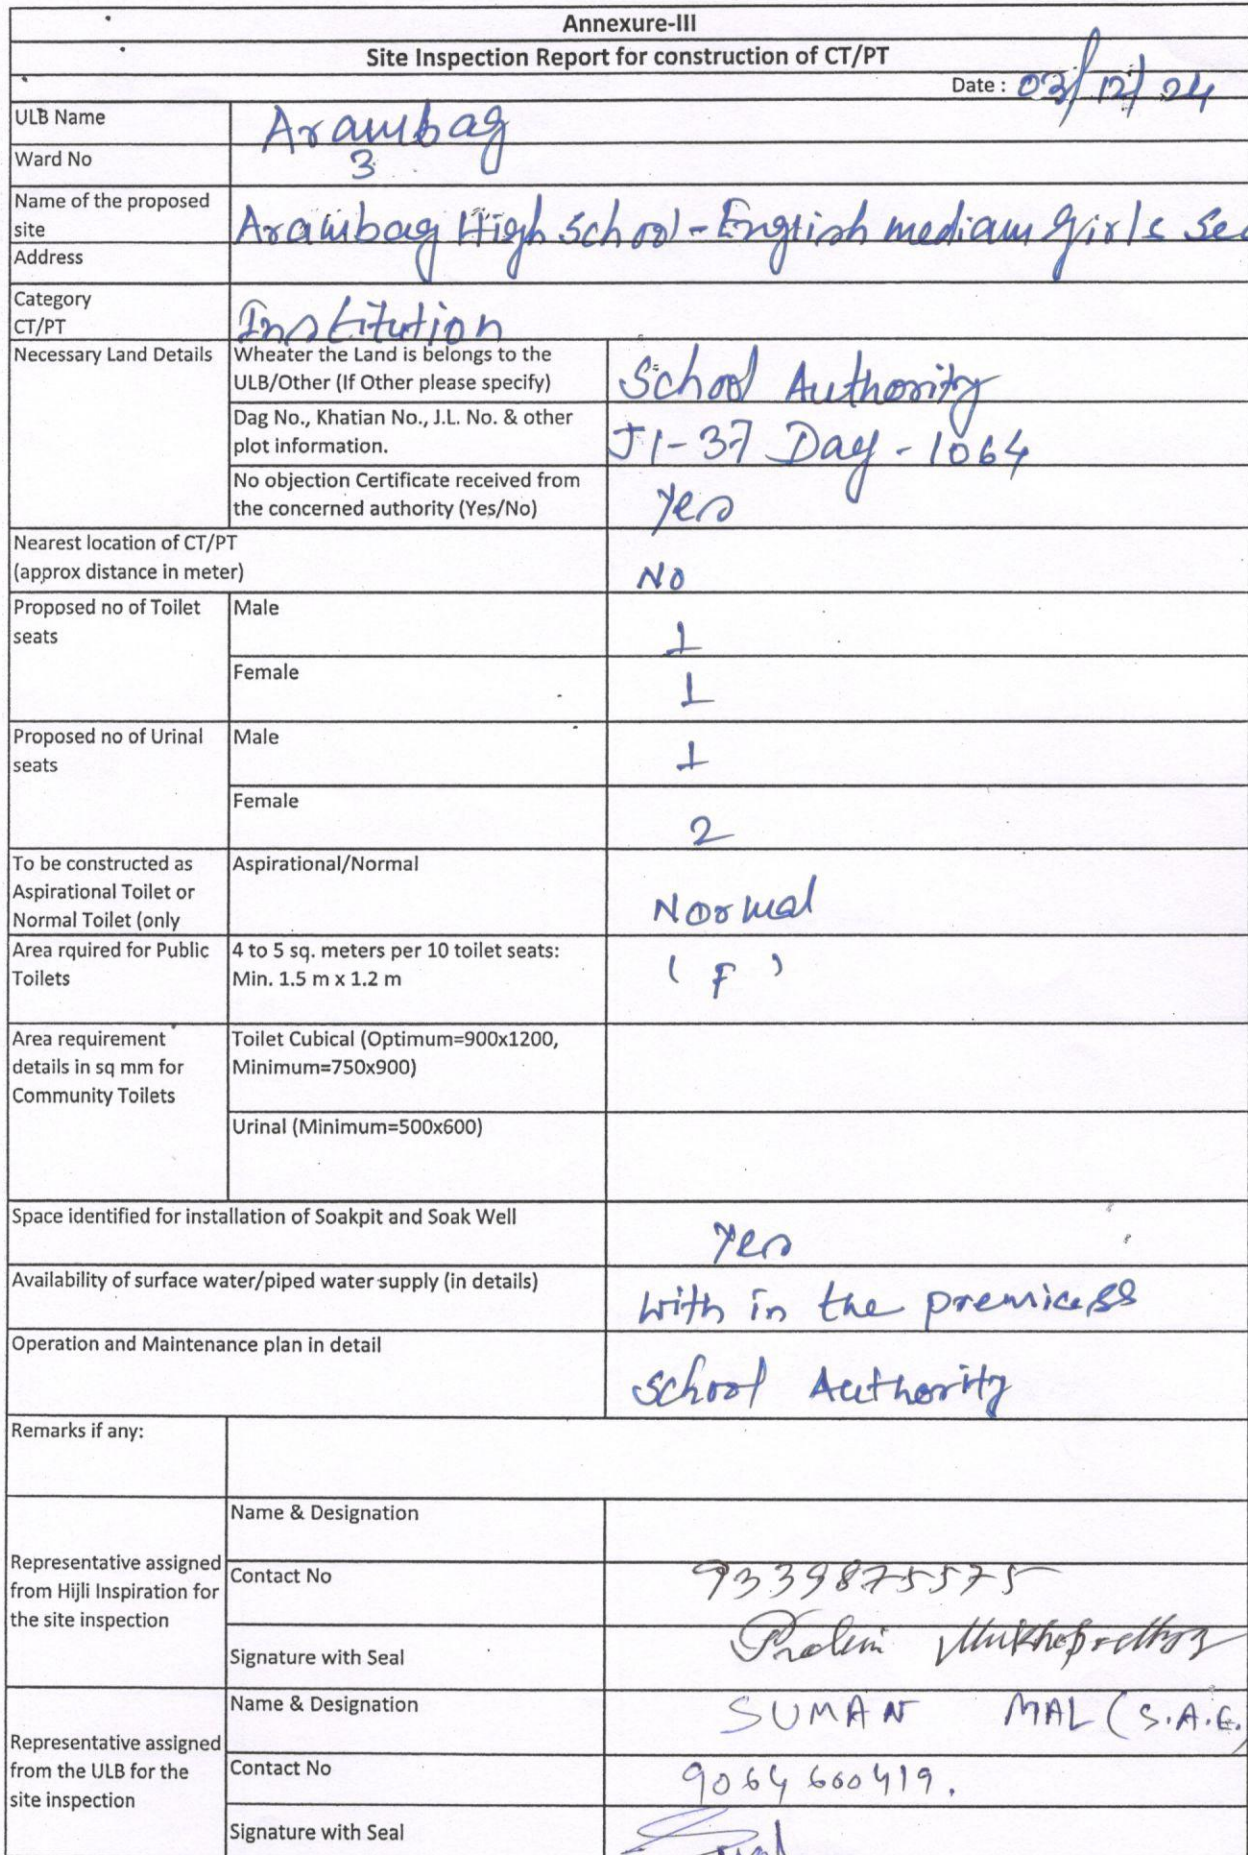 Annexure-III
Site Inspection Report for construction of CT/PT
Date : 03/12/24
ULB Name Arambag
Ward No 3
Name of the proposed
site Arambag High School - English mediam Girls Sec
Address
Category
CT/PT Institution
Necessary Land Details
Wheater the Land is belongs to the
ULB/Other (If Other please specify)
School Authority
Dag No., Khatian No., J.L. No. & other
plot information.
Jl-37 Dag - 1064
No objection Certificate received from
the concerned authority (Yes/No)
Yes
Nearest location of CT/PT
(approx distance in meter)
No
Proposed no of Toilet
seats
Male 1
Female 1
Proposed no of Urinal
seats
Male 1
Female 2
To be constructed as
Aspirational Toilet or
Normal Toilet (only
Aspirational/Normal
Normal
Area rquired for Public
Toilets
4 to 5 sq. meters per 10 toilet seats:
Min. 1.5 m x 1.2 m
( F )
Area requirement
details in sq mm for
Community Toilets
Toilet Cubical (Optimum=900x1200,
Minimum=750x900)
Urinal (Minimum=500x600)
Space identified for installation of Soakpit and Soak Well
Yes
Availability of surface water/piped water supply (in details)
with in the premicess
Operation and Maintenance plan in detail
School Authority
Remarks if any:
Representative assigned
from Hijli Inspiration for
the site inspection
Name & Designation
Contact No 9339875575
Signature with Seal
Representative assigned
from the ULB for the
site inspection
Name & Designation SUMAN MAL (S.A.E.)
Contact No 9064660419.
Signature with Seal